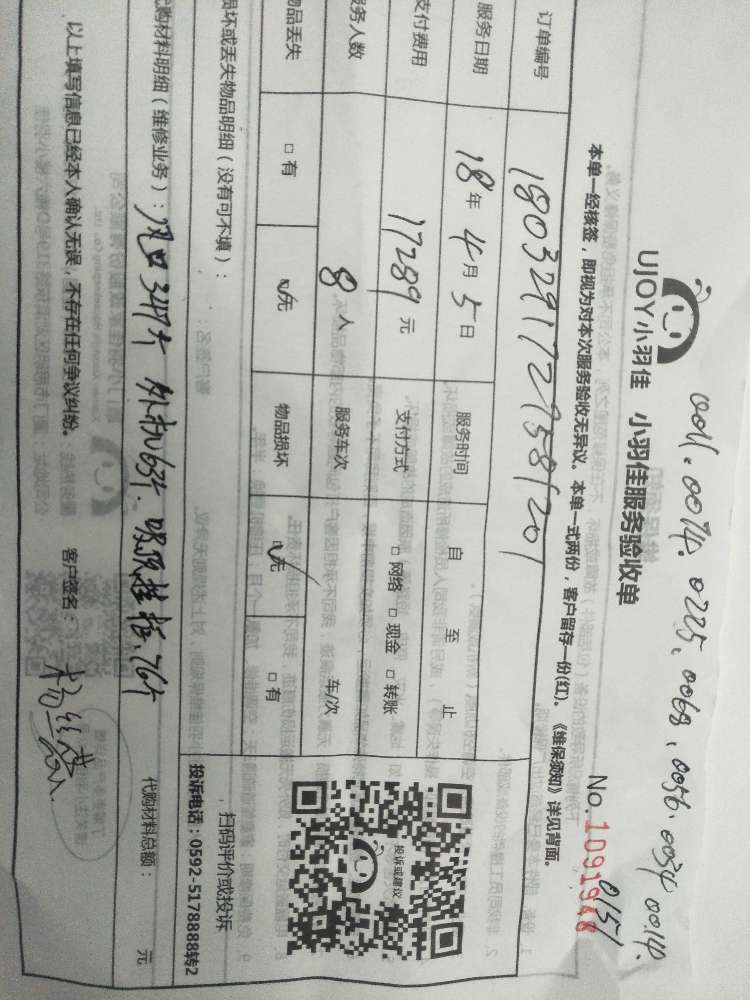 0011、0074、0225、0068、0056、0034、0014、
0151
UJOY小羽佳 小羽佳服务验收单
No.1091948
本单一经核签，即视为对本次服务验收无异议。本单一式两份，客户留存一份(红)。《维保须知》详见背面。
订单编号 180329172758201
服务日期 18年4月5日 服务时间 自 至 止
支付费用 17289元 支付方式 □网络 □现金 □转账
务人数 8人 服务车次 车/次
物品丢失 □有 □无 物品损坏 □无 □有
损坏或丢失物品明细（没有可不填）：
代购材料明细（维修业务）：风口347个 外机63个、吸顶挂柜、76个
代购材料总额： 元
以上填写信息已经本人确认无误，不存在任何争议纠纷。 客户签名：
投诉或建议
扫码评价或投诉
投诉电话：0592-5178888转2